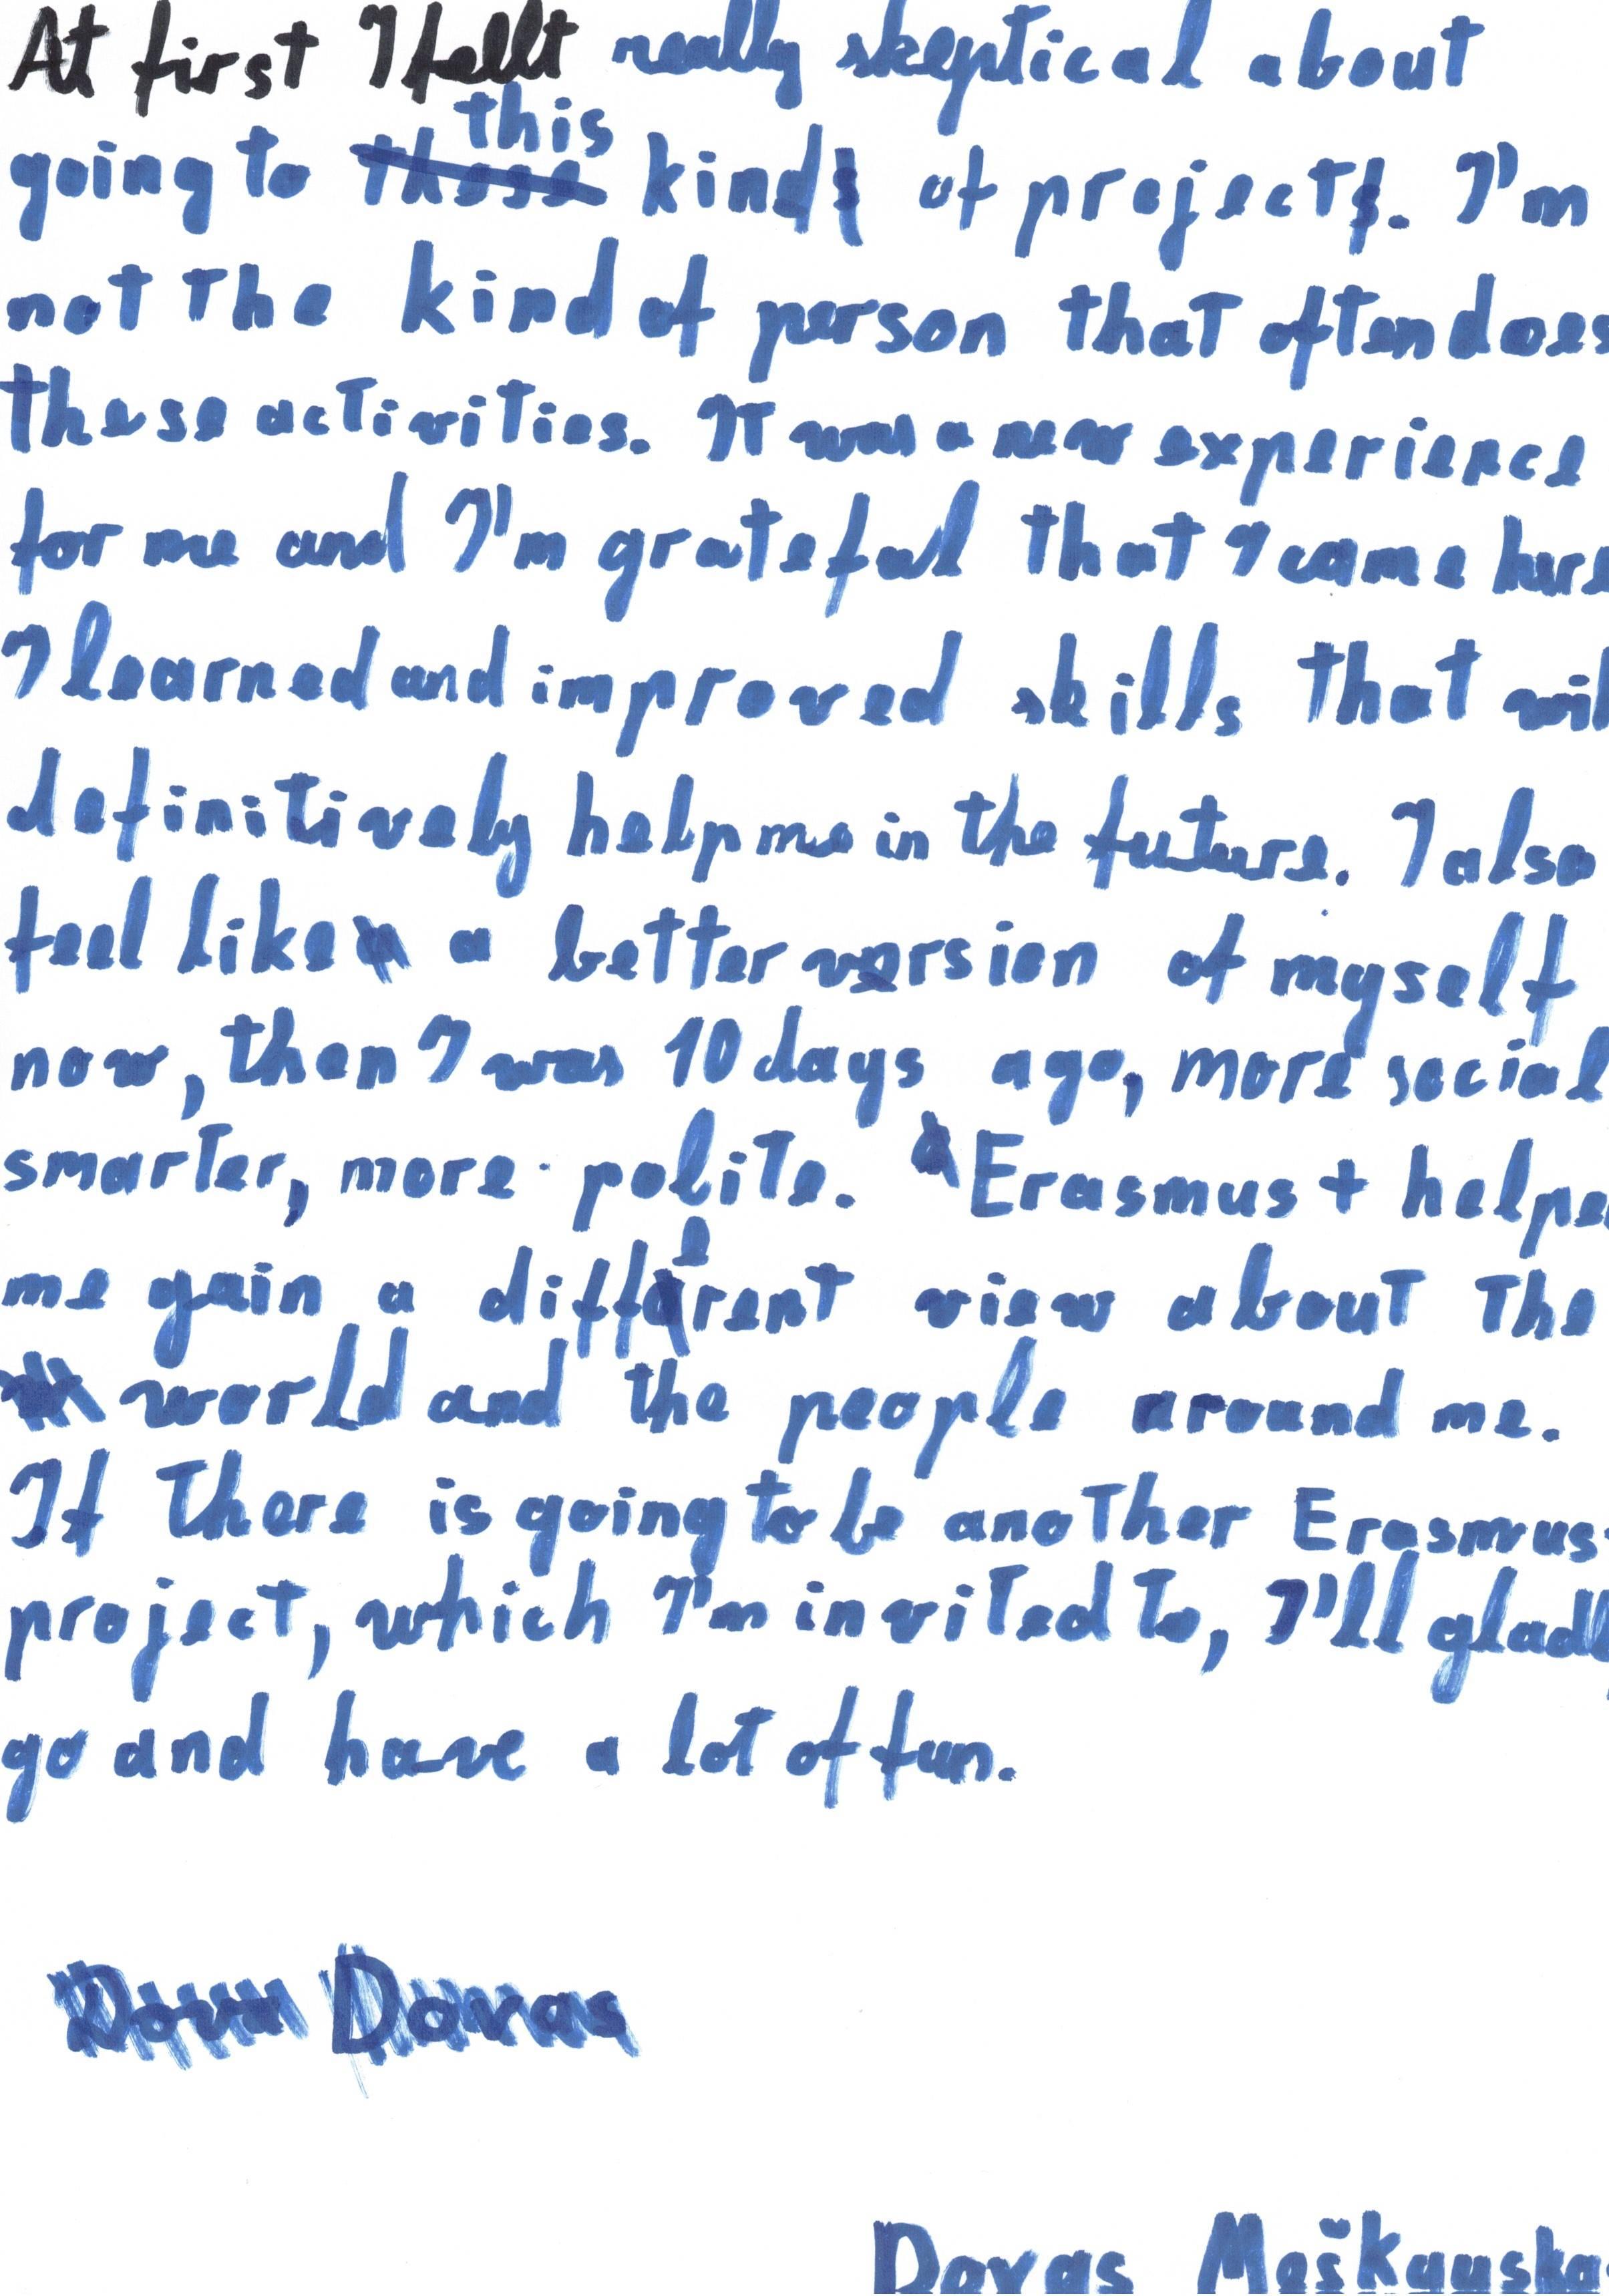 At first I fellt really skeptical about
this
going to those kind of project. I'm
not the kind of person that often does
these activities. It was a new experience
for me and I'm grateful that I came here
I learned and improved skills that wil
definitively help me in the future. I also
feel like a better version of myself
now, then I was 10 days ago, more social
smarter, more polite. Erasmus+ helpe
me gain a different view about the
world and the people around me.
If there is going to be another Erasmus+
project, which I'm invited to, I'll gladly
go and have a lot of fun.
Dova Dovas
Dovas Moškauskas